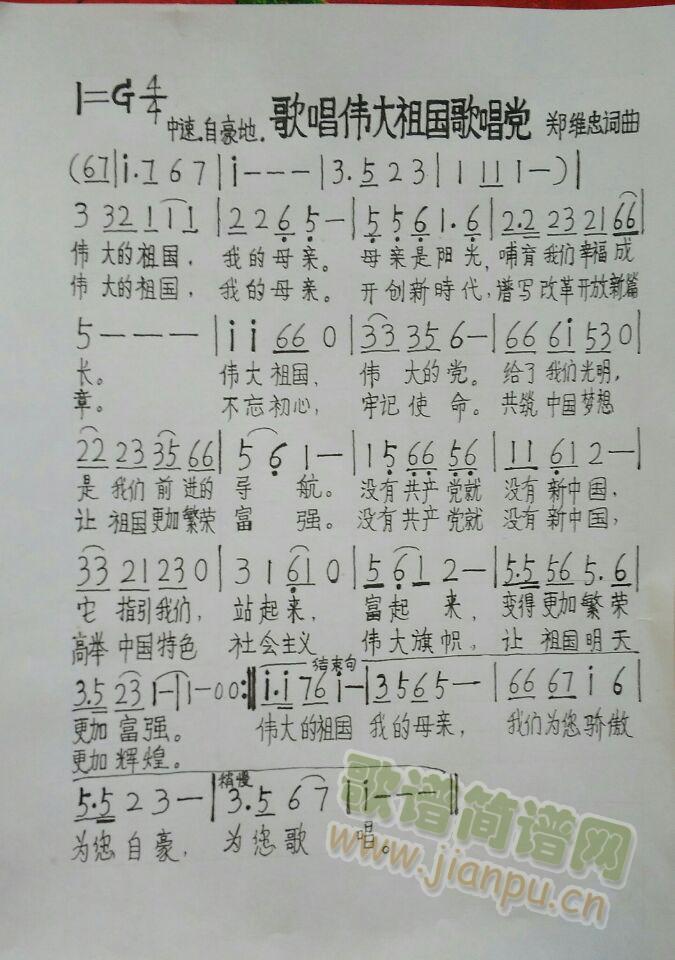 1=G 4/4 中速.自豪地. 歌唱伟大祖国歌唱党 郑维忠词曲
(67|i.7 6 7|i---|3.5 2 3|1 11 1-)|
3 32 1 1 1|2 2 6 5-|5 5 6 1.6|2.2 23 21 66|
伟 大的祖国，我的母亲。母亲是阳光，哺育我们幸福成
伟 大的祖国，我的母亲。开创新時代，谱写改革开放新篇
5---|i i 66 0|33 35 6-|66 6i 53 0|
长。 伟大祖国，伟 大的党。给了我们光明，
章。 不忘初心，牢记使命。共筑中国梦想
22 23 35 66|5 6 1-|1 5 66 56|11 61 2-|
是 我们前进的 导 航。没有共产党就 没有新中国，
让 祖国更加繁荣 富 强。没有共产党就 没有新中国，
33 21 23 0|3 1 61 0|5 6 1 2-|5.5 56 5.6|
它 指引我们，站起来，富起 来，变得更加繁荣
高举中国特色 社会主义 伟大旗帜，让 祖国明天
结束句
3.5 23 1-|1-00:‖i.i 76 i-|3 5 6 5-|66 67 i 6|
更加富强。 伟大的祖国 我的母亲，我们为您骄傲
更加辉煌。
稍慢
5.5 2 3-|3.5 6 7|i---‖
为您自豪，为您歌 唱。
歌谱简谱网
www.jianpu.cn